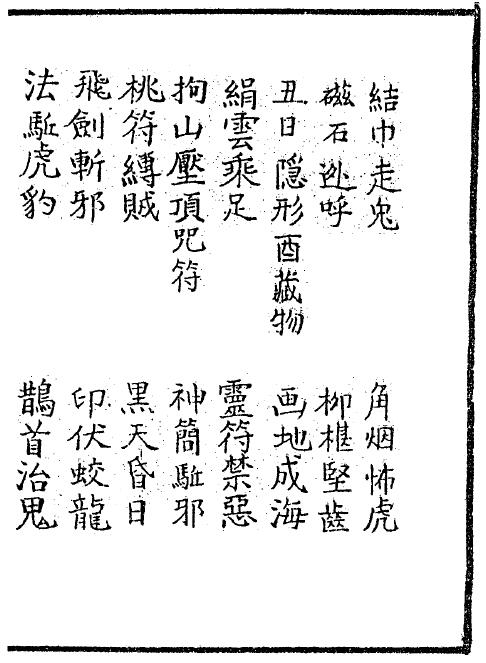 結巾走兔　角烟怖虎
磁石迯呼　柳椹堅齒
丑日隱形酉藏物　画地成海
絹雲乘足　靈符禁惡
拘山壓頂咒符　神簡駈邪
桃符縛賊　黑天昏日
飛劍斬邪　印伏蛟龍
法駈虎豹　鵲首治鬼